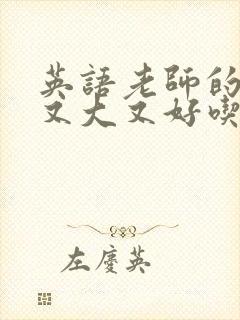 英語老師的
又大又好喫
左慶英